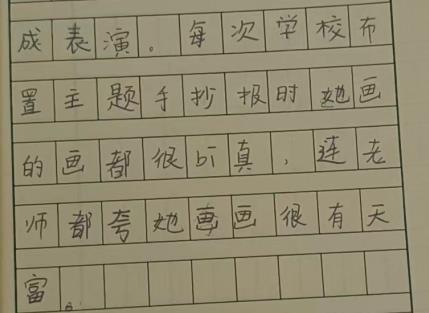 成表演。每次学校布
置主题手抄报时她画
的画都很bi真,连老
师都夸她画画很有天
富。